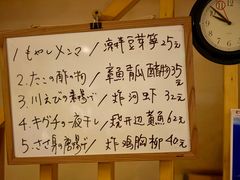 1. もやしメンマ / 麻辣豆芽筝 25元
2. たこの酢の物 / 章魚黄瓜醋拌 35元
3. 川えびの素揚げ / 炸河虾 32元
4. キグチの一夜干し / 我干迎黄魚 62元
5. ささ身の唐揚げ / 炸鶏胸柳 40元